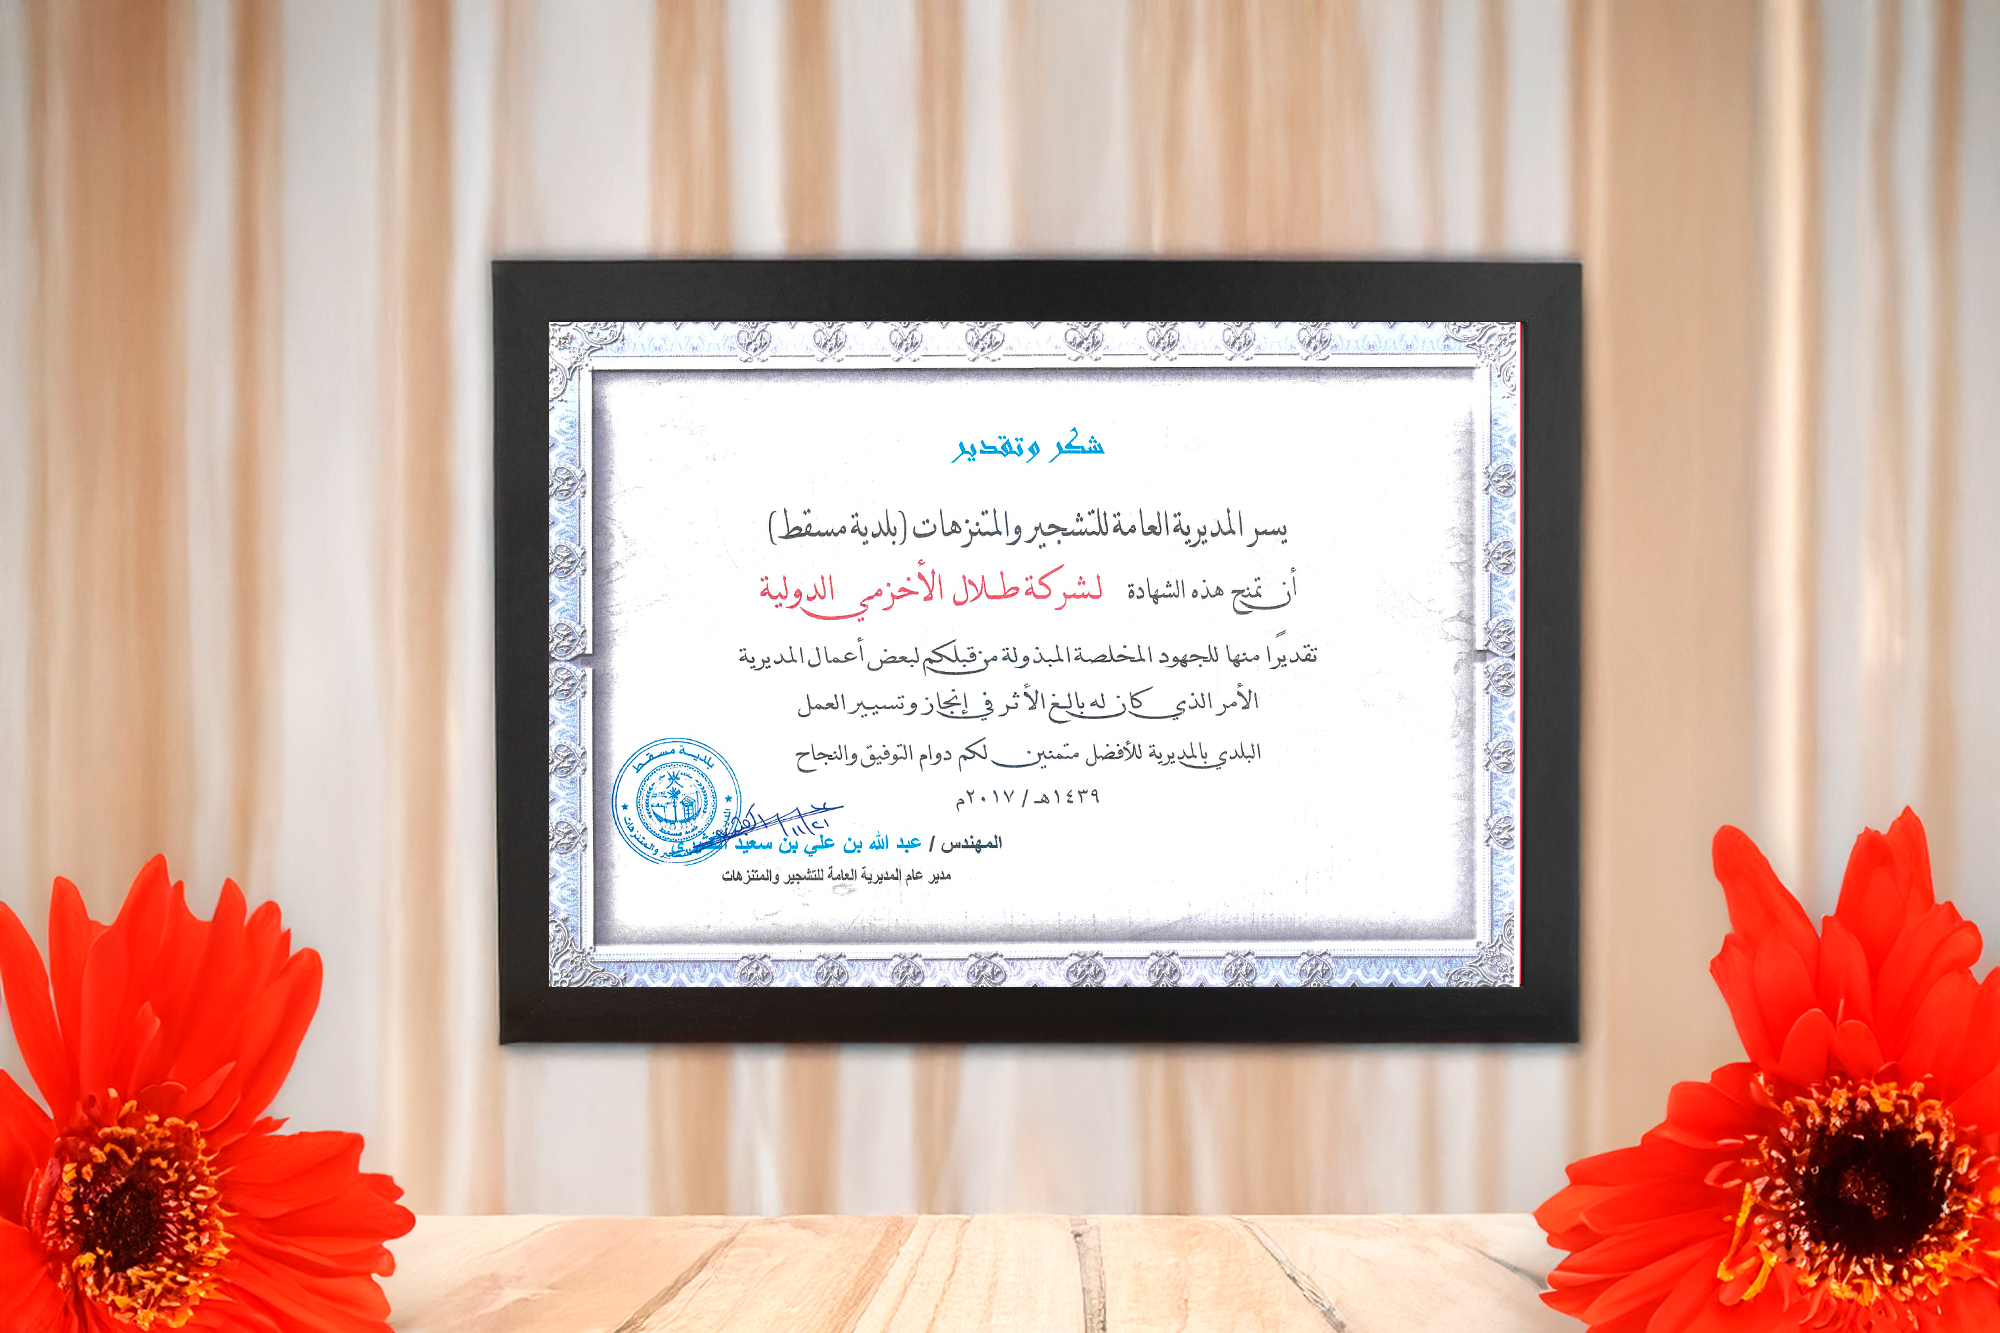 شكر وتقدير
يسر المديرية العامة للتشجير والمتنزهات (بلدية مسقط)
أن تمنح هذه الشهادة لشركة طلال الأخزمي الدولية
تقديرًا منها للجهود المخلصة المبذولة من قبلكم لبعض أعمال المديرية
الأمر الذي كان له بالغ الأثر في إنجاز وتسيير العمل
البلدي بالمديرية للأفضل متمنين لكم دوام التوفيق والنجاح
١٤٣٩هـ / ٢٠١٧م
المهندس / عبد الله بن علي بن سعيد
مدير عام المديرية العامة للتشجير والمتنزهات
بلدية مسقط